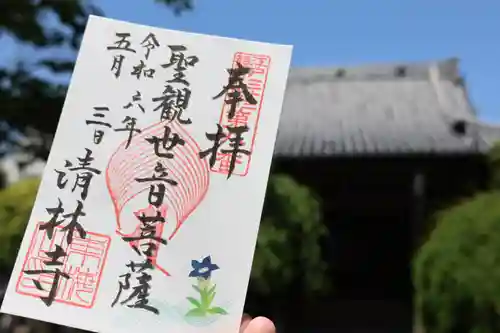 奉拝
聖観世音菩薩
令和六年
五月
三日
請林寺